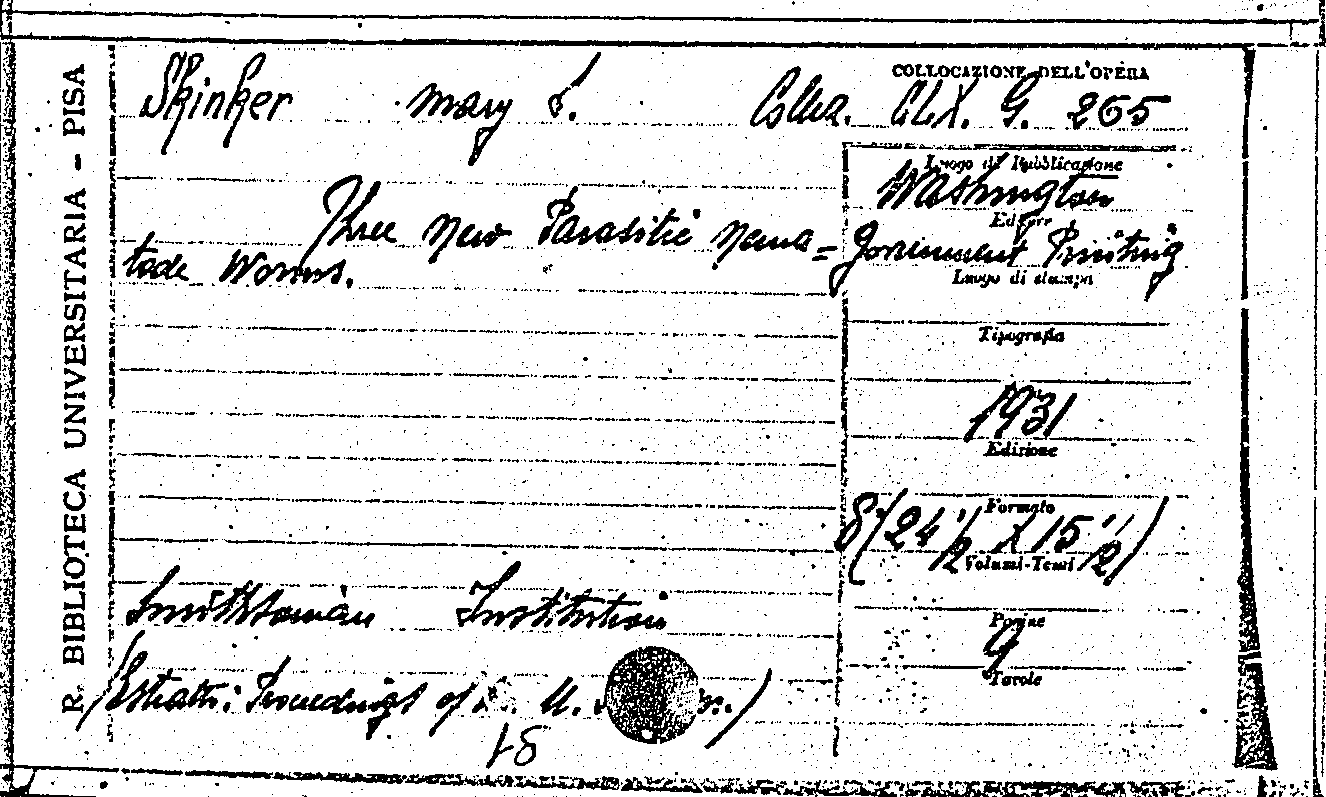 R. BIBLIOTECA UNIVERSITARIA - PISA
COLLOCAZIONE DELL'OPERA
Skinker Mary S. CLX. G. 265
Luogo di Pubblicazione
Washington
Editore
Three New Parasitic Nema=
tode Worms.
Government Printing
Luogo di stampa
Tipografia
1931
Edizione
Formato
8(24 1/2 X 15 1/2)
Volumi-Tomi
Smithsonian Institution
Pagine
9
Tavole
(Estratto: Proceedings of U.
18